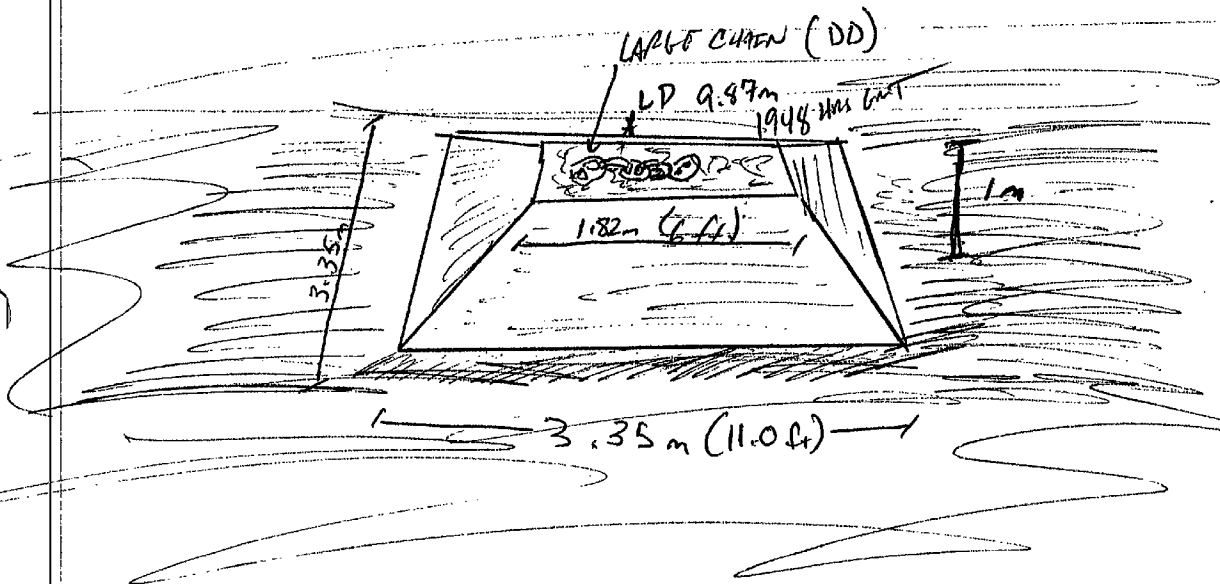 LARGE CHAIN (DD)
LD 9.87m
1948 HRS GMT
1m
1.82m (6 ft.)
3.35m
3.35m (11.0 ft)